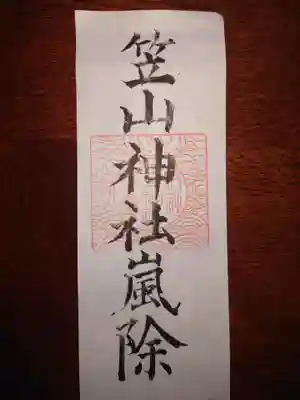 笠山神社嵐除